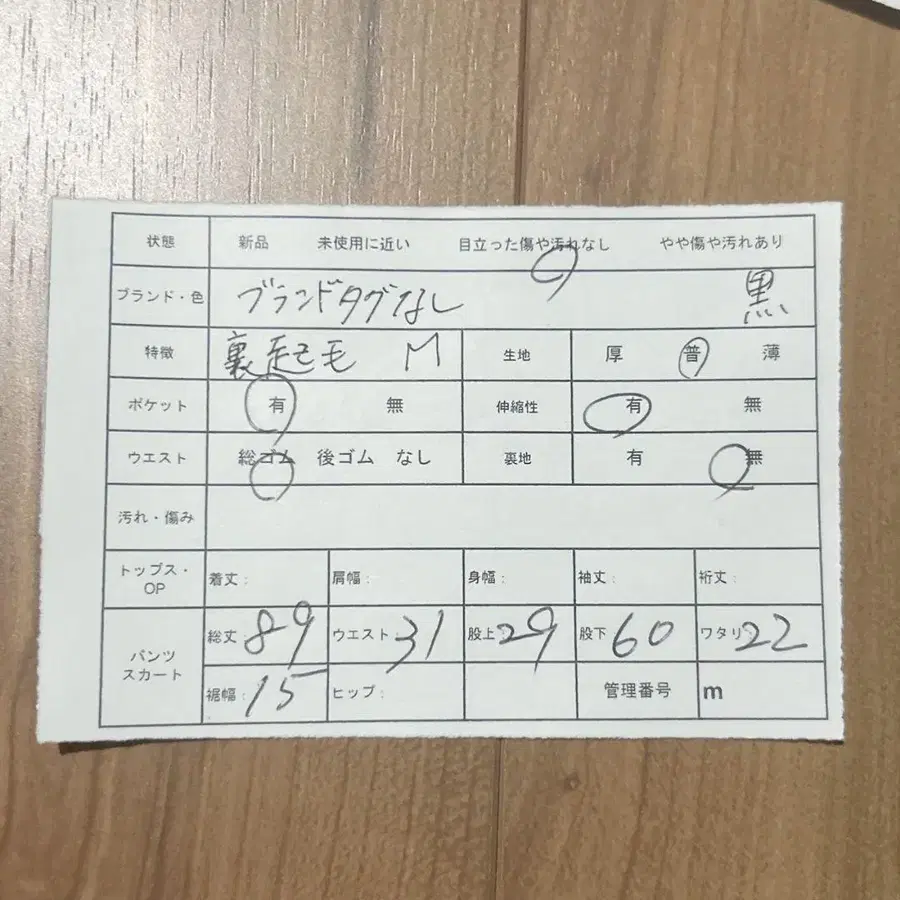 状態 新品 未使用に近い 目立った傷や汚れなし やや傷や汚れあり
ブランド・色 ブランドタグなし 黒
特徴 裏起毛 M 生地 厚 普 薄
ポケット 有 無 伸縮性 有 無
ウエスト 総ゴム 後ゴム なし 裏地 有 無
汚れ・傷み
トップス・OP 着丈: 肩幅: 身幅: 袖丈: 裄丈:
パンツ スカート 総丈 89 ウエスト 31 股上: 29 股下 60 ワタリ: 22
裾幅: 15 ヒップ: 管理番号 m